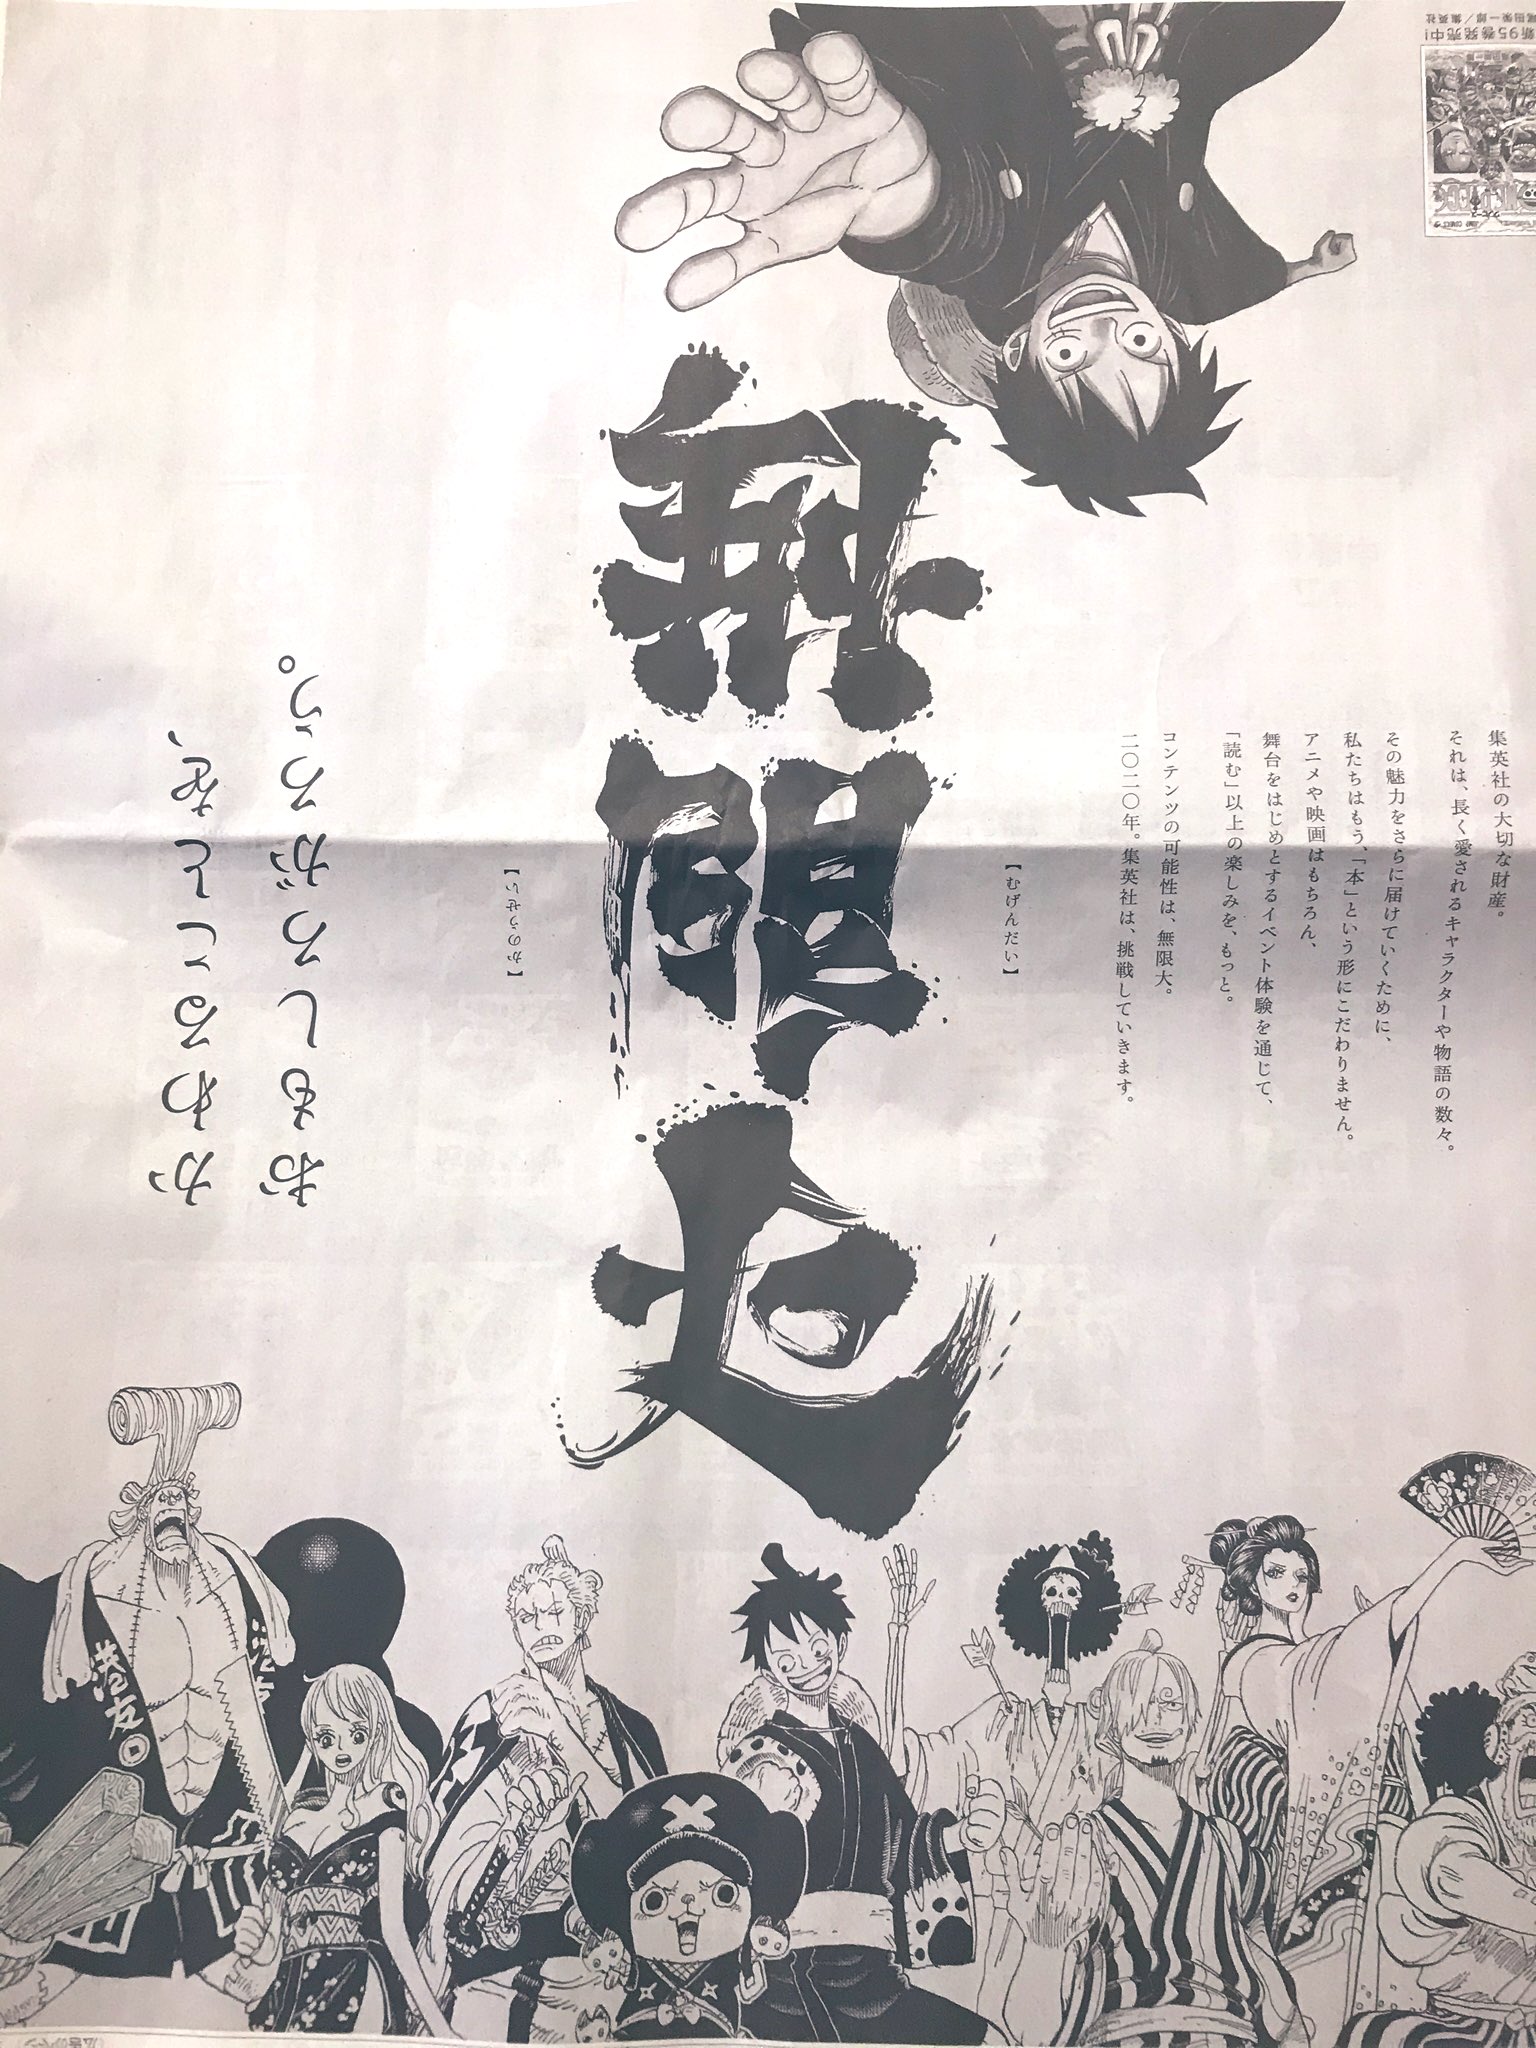 集英社の大切な財産。
それは、長く愛されるキャラクターや物語の数々。
その魅力をさらに届けていくために、
私たちはもう、「本」という形にこだわりません。
アニメや映画はもちろん、
舞台をはじめとするイベント体験を通じて、
「読む」以上の楽しみを、もっと。
コンテンツの可能性は、無限大。
二〇二〇年。集英社は、挑戦していきます。
【むげんだい】
無限大
【かのうせい】
かわることを、
おもしろがろう。
新95巻発売中!
尾田栄一郎/集英社
ONE PIECE
ワンピース